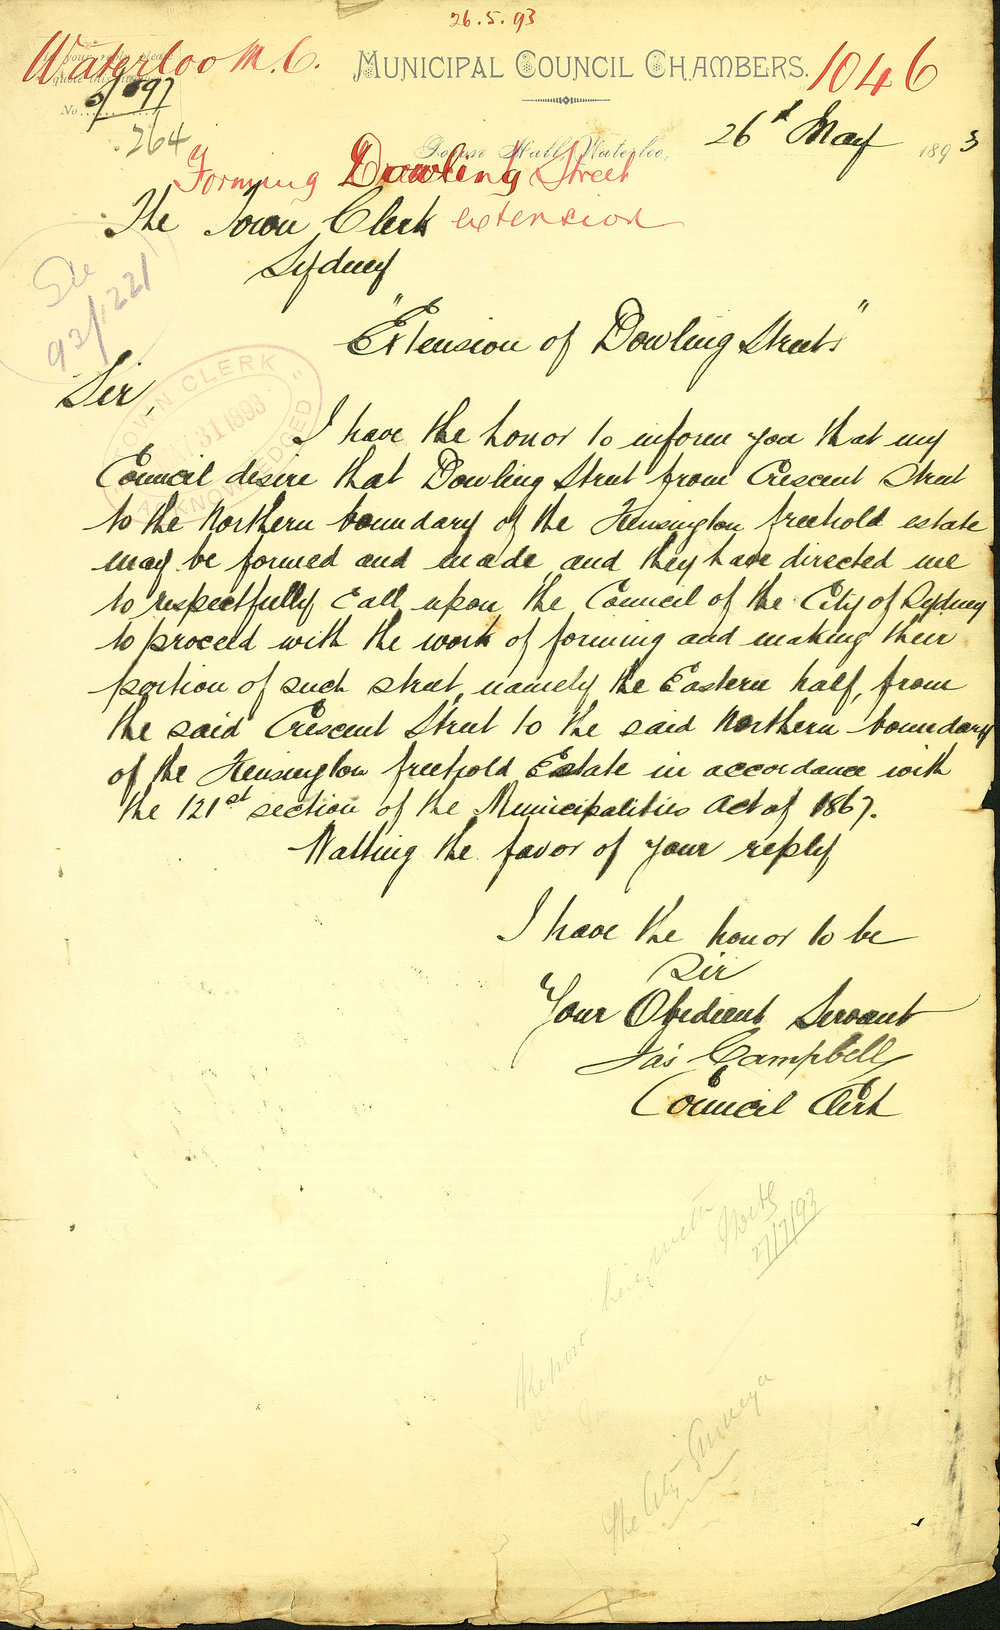 26.5.93
Waterloo M.C.
MUNICIPAL COUNCIL CHAMBERS.
1046
In your reply please
quote this
No. 97
264
Town Hall, Waterloo,
26th May 1893
Forming Dowling Street
extension
The Town Clerk
Sydney
See
92/1221
"Extension of Dowling Street"
TOWN CLERK
MAY 31 1893
ACKNOWLEDGED
Sir,
I have the honor to inform you that my
Council desire that Dowling Street from Crescent Street
to the Northern boundary of the Kensington freehold estate
may be formed and made, and they have directed me
to respectfully call upon the Council of the City of Sydney
to proceed with the work of forming and making their
portion of such street, namely the Eastern half, from
the said Crescent Street to the said Northern boundary
of the Kensington freehold Estate in accordance with
the 121st section of the Municipalities Act of 1867.
Waiting the favor of your reply
I have the honor to be
Sir
Your Obedient Servant
Jas Campbell
Council Clerk
27/7/93
The City Surveyor